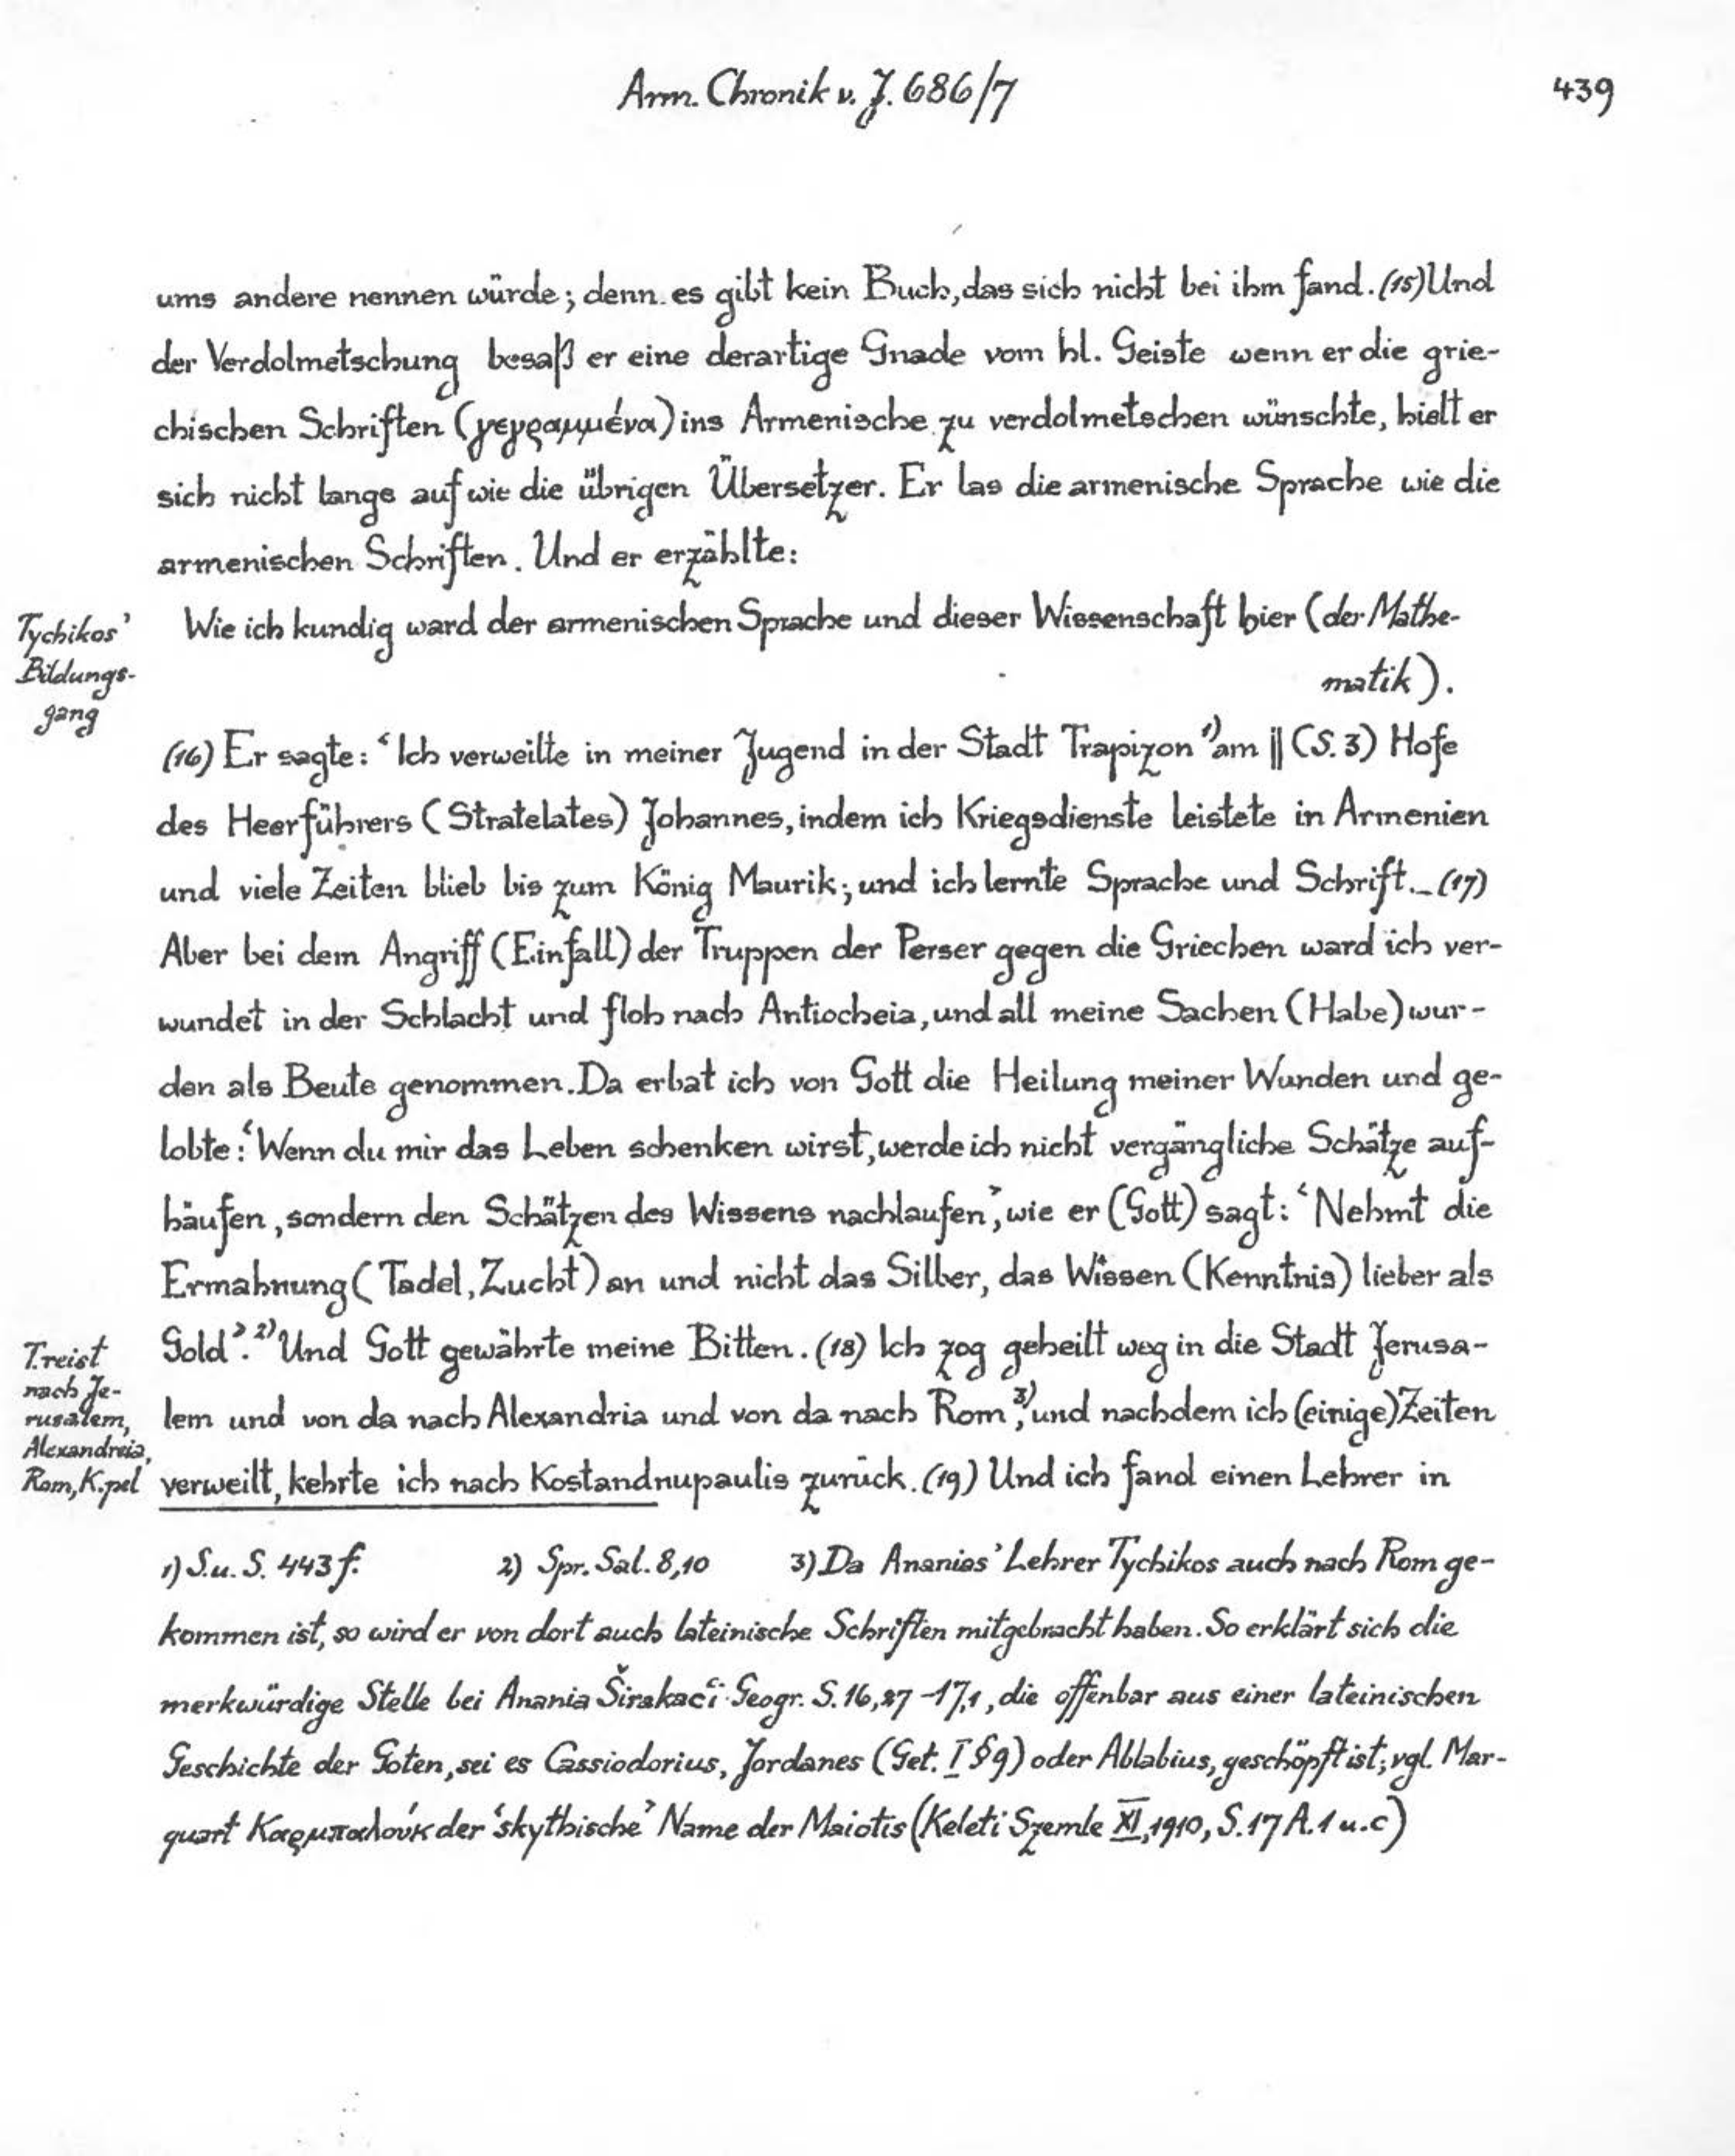 Arm. Chronik v. J. 686/7
439
ums andere nennen würde; denn es gibt kein Buch, das sich nicht bei ihm fand. (15) Und
der Verdolmetschung besaß er eine derartige Gnade vom hl. Geiste wenn er die grie-
chischen Schriften (γεγραμμένα) ins Armenische zu verdolmetschen wünschte, hielt er
sich nicht lange auf wie die übrigen Übersetzer. Er las die armenische Sprache wie die
armenischen Schriften. Und er erzählte:
Tychikos'
Bildungs-
gang
Wie ich kundig ward der armenischen Sprache und dieser Wissenschaft hier (der Mathe-
matik).
(16) Er sagte: ‘Ich verweilte in meiner Jugend in der Stadt Trapizon 1) am || (S. 3) Hofe
des Heerführers (Stratelates) Johannes, indem ich Kriegsdienste leistete in Armenien
und viele Zeiten blieb bis zum König Maurik; und ich lernte Sprache und Schrift._ (17)
Aber bei dem Angriff (Einfall) der Truppen der Perser gegen die Griechen ward ich ver-
wundet in der Schlacht und floh nach Antiocheia, und all meine Sachen (Habe) wur-
den als Beute genommen. Da erbat ich von Gott die Heilung meiner Wunden und ge-
lobte: ‘Wenn du mir das Leben schenken wirst, werde ich nicht vergängliche Schätze auf-
häufen, sondern den Schätzen des Wissens nachlaufen’, wie er (Gott) sagt: ‘Nehmt die
Ermahnung (Tadel, Zucht) an und nicht das Silber, das Wissen (Kenntnis) lieber als
Gold’. 2) Und Gott gewährte meine Bitten. (18) Ich zog geheilt weg in die Stadt Jerusa-
lem und von da nach Alexandria und von da nach Rom 3), und nachdem ich (einige) Zeiten
verweilt, kehrte ich nach Kostandnupaulis zurück. (19) Und ich fand einen Lehrer in
T. reist
nach Je-
rusalem,
Alexandreia,
Rom, K.pel
1) S. u. S. 443 f. 2) Spr. Sal. 8,10 3) Da Ananias' Lehrer Tychikos auch nach Rom ge-
kommen ist, so wird er von dort auch lateinische Schriften mitgebracht haben. So erklärt sich die
merkwürdige Stelle bei Anania Širakac‘i Geogr. S. 16,27 -17,1, die offenbar aus einer lateinischen
Geschichte der Goten, sei es Cassiodorius, Jordanes (Get. I § 9) oder Ablabius, geschöpft ist; vgl. Mar-
quart Καρμπαλούκ der ‘skythische’ Name der Maiotis (Keleti Szemle XI, 1910, S. 17 A. 1 u. c)